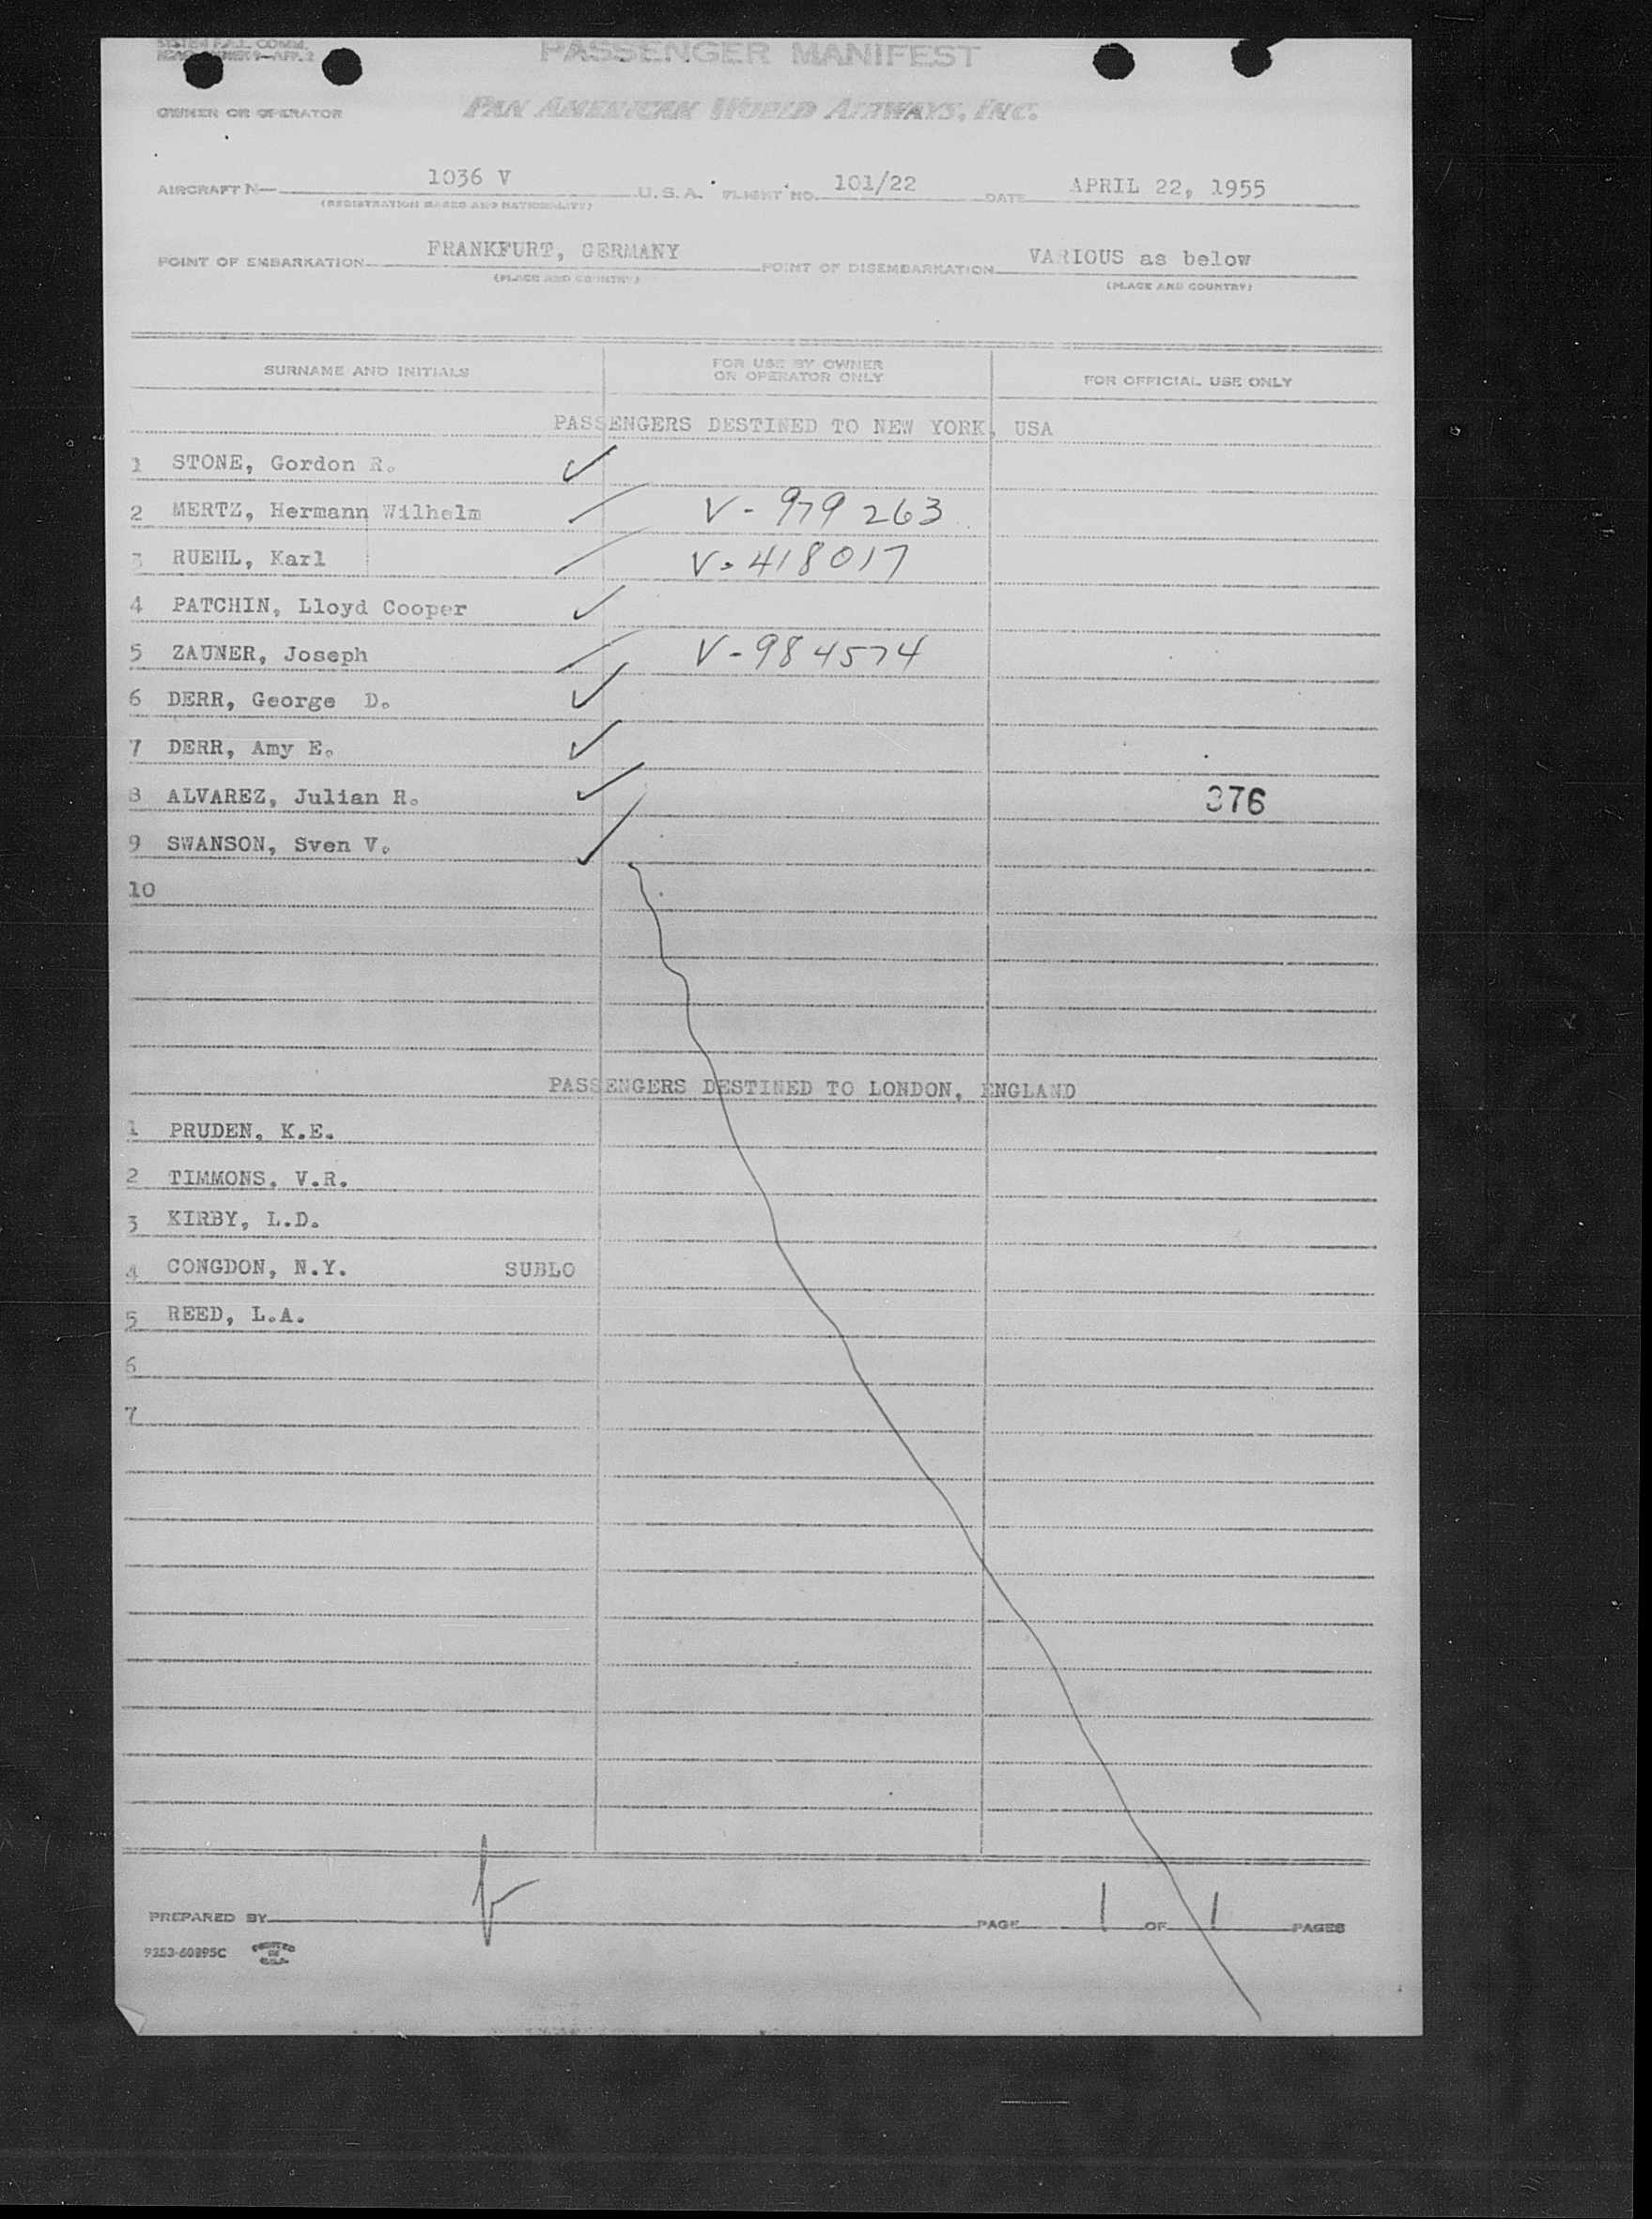 PASSENGER MANIFEST
OWNER OR OPERATOR PAN AMERICAN WORLD AIRWAYS, INC.
AIRCRAFT N— 1036 V U.S.A. FLIGHT NO. 101/22 DATE APRIL 22, 1955
(REGISTRATION MARKS AND NATIONALITY)
POINT OF EMBARKATION FRANKFURT, GERMANY POINT OF DISEMBARKATION VARIOUS as below
(PLACE AND COUNTRY) (PLACE AND COUNTRY)
SURNAME AND INITIALS FOR USE BY OWNER OR OPERATOR ONLY FOR OFFICIAL USE ONLY
PASSENGERS DESTINED TO NEW YORK, USA
1 STONE, Gordon R.
2 MERTZ, Hermann Wilhelm V-979263
3 RUEHL, Karl V-418017
4 PATCHIN, Lloyd Cooper
5 ZAUNER, Joseph V-984574
6 DERR, George D.
7 DERR, Amy E.
8 ALVAREZ, Julian H. 376
9 SWANSON, Sven V.
10
PASSENGERS DESTINED TO LONDON, ENGLAND
1 PRUDEN, K.E.
2 TIMMONS, V.R.
3 KIRBY, L.D.
4 CONGDON, N.Y. SUBLO
5 REED, L.A.
6
7
PREPARED BY PAGE 1 OF 1 PAGES
9353-60895C PRINTED IN U.S.A.